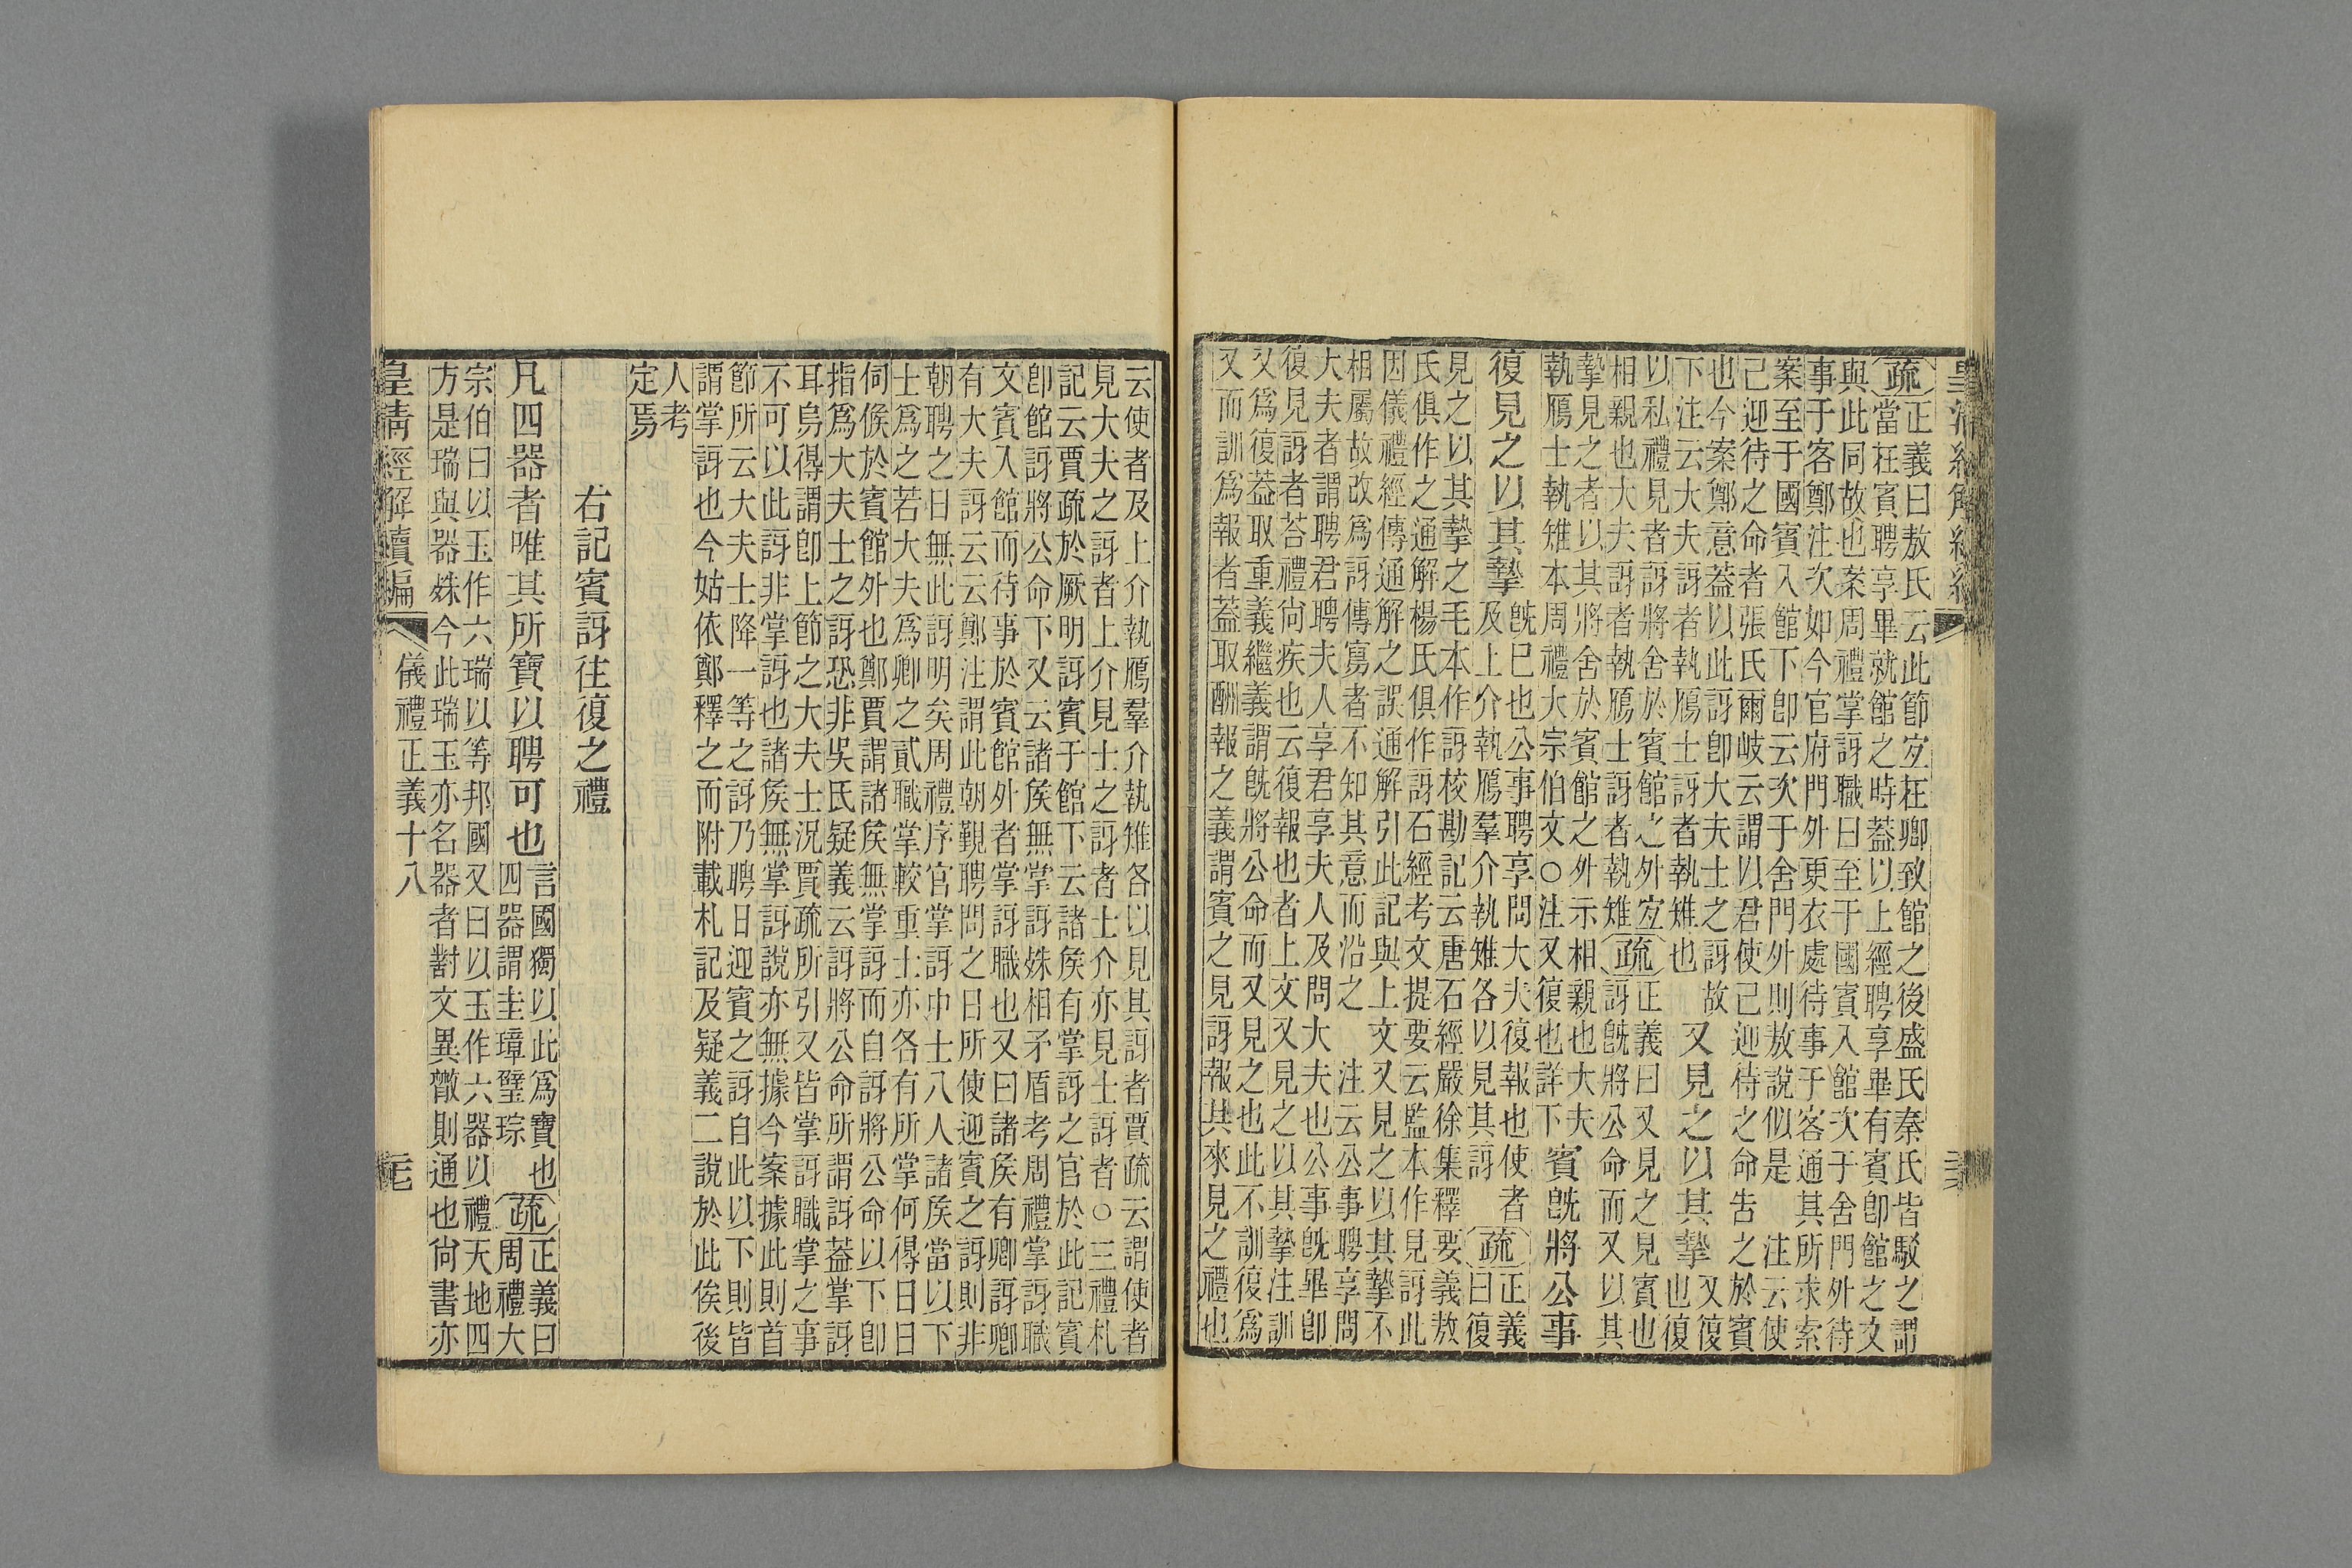 皇清經解續編
疏正義曰敖氏云此節宜在卿致館之後盛氏秦氏皆駁之謂
當在賓聘享畢就館之時蓋以上經聘享畢有賓卽館之文
與此同故也案周禮掌訝職曰至于國賓入館次于舍門外待
事于客鄭注次如今官府門外更衣處待事于客通其所求索
案至于國賓入館下卽云次于舍門外則敖說似是　注云使
己迎待之命者張氏爾岐云謂以君使己迎待之命告之於賓
也今案鄭意蓋以此訝卽大夫士之訝故
下注云大夫訝者執鴈士訝者執雉也
又見之以其摯又復也復
以私禮見者訝將舍於賓館之外宜
相親也大夫訝者執鴈士訝者執雉疏正義曰又見之見賓也
訝旣將公命而又以其
摯見之者以其將舍於賓館之外示相親也大夫
執鴈士執雉本周禮大宗伯文○注又復也詳下
賓旣將公事
復見之以其摯旣巳也公事聘享問大夫復報也使者
及上介執鴈羣介執雉各以見其訝疏正義
曰復
見之以其摯之毛本作訝校勘記云唐石經嚴徐集釋要義敖
氏俱作之通解楊氏俱作訝石經考文提要云監本作見訝此
因儀禮經傳通解之誤通解引此記與上文又見之以其摯不
相屬故改爲訝傳寫者不知其意而沿之　注云公事聘享問
大夫者謂聘君聘夫人享君享夫人及問大夫也公事旣畢卽
復見訝者荅禮尙疾也云復報也者上文又見之以其摯注訓
又爲復蓋取重義繼義謂旣將公命而又見之也此不訓復爲
又而訓爲報者蓋取酬報之義謂賓之見訝報其來見之禮也
云使者及上介執鴈羣介執雉各以見其訝者賈疏云謂使者
見大夫之訝者上介見士之訝者士介亦見士訝者○三禮札
記云賈疏於厥明訝賓于館下云諸矦有掌訝之官於此記賓
卽館訝將公命下又云諸矦無掌訝姝相矛盾考周禮掌訝職
文賓入館而待事於賓館外者掌訝職也又曰諸矦有卿訝卿
有大夫訝云云鄭注謂此朝覲聘問之日所使迎賓之訝則非
朝聘之日無此訝明矣周禮序官掌訝中士八人諸矦當以下
士爲之若大夫爲卿之貳職掌較重士亦各有所掌何得日日
伺候於賓館外也鄭賈謂諸矦無掌訝而自訝將公命以下卽
指爲大夫士之訝恐非吳氏疑義云訝將公命所謂訝蓋掌訝
耳烏得謂卽上節之大夫士況賈疏所引又皆掌訝職掌之事
不可以此訝非掌訝也諸矦無掌訝說亦無據今案據此則首
節所云大夫士降一等之訝乃聘日迎賓之訝自此以下則皆
謂掌訝也今姑依鄭釋之而附載札記及疑義二說於此俟後
人考
定焉
右記賓訝往復之禮
凡四器者唯其所寶以聘可也言國獨以此爲寶也
四器謂圭璋璧琮疏正義曰
周禮大
宗伯曰以玉作六瑞以等邦國又曰以玉作六器以禮天地四
方是瑞與器姝今此瑞玉亦名器者對文異散則通也尙書亦
皇清經解續編　儀禮正義十八